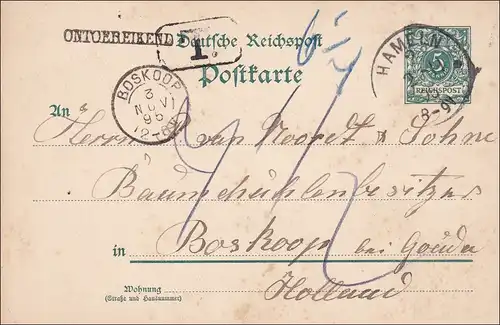 ONTOEREIKEND
T.
Deutsche Reichspost
Postkarte
HAMELN
8-9
5
REICHSPOST
BOSKOOP
3
NOV
95
An Herrn P. van Noordt & Sohne
Baumschulenbesitzer
in Boskoop bei Gouda
Holland
Wohnung
(Straße und Hausnummer)